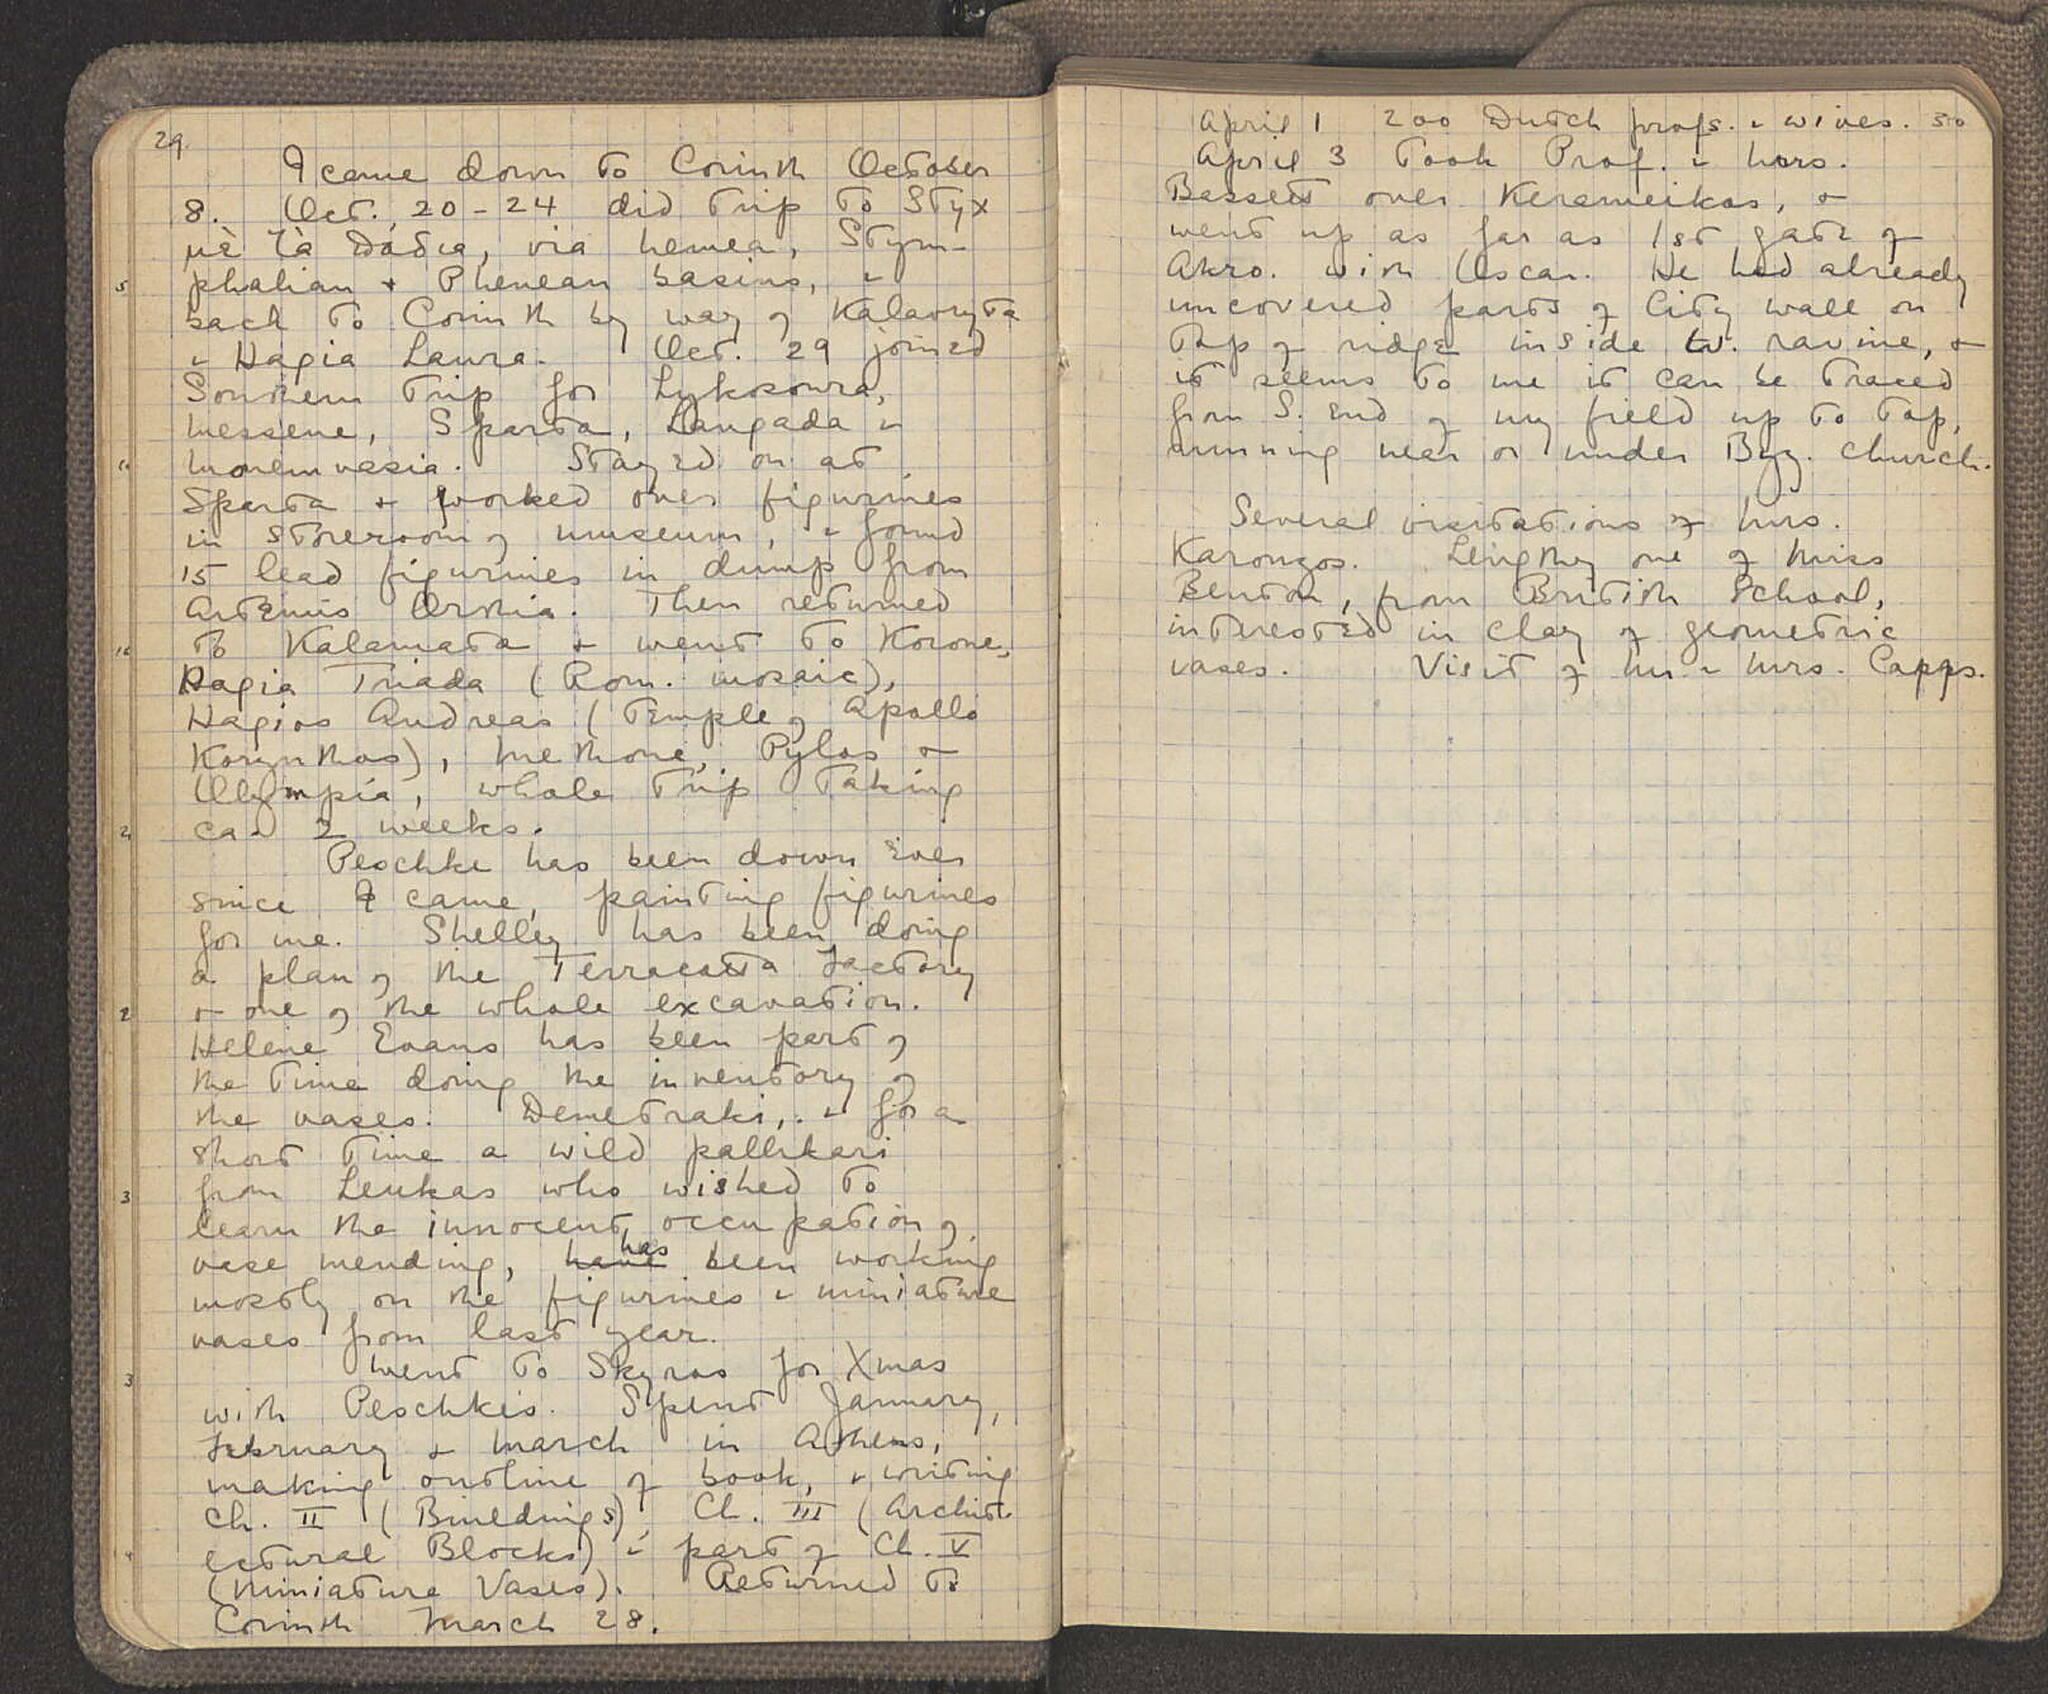 29
I came down to Corinth October
8. Oct. 20-24 did trip to Styx
μὲ τὰ πόδια, via Nemea, Stym-
5 phalian + Phenean basins, +
back to Corinth by way of Kalavryta
+ Hagia Laura. Oct. 29 joined
Southern Trip for Lykosoura,
Messene, Sparta, Langada +
Monemvasia. Stayed on at
Sparta + worked over figurines
in storeroom of museum, + found
15 lead figurines in dump from
Artemis Orthia. Then returned
to Kalamata + went to Korone,
Hagia Triada (Rom. mosaic),
Hagios Andreas (Temple of Apollo
Korynthos), Methone, Pylos +
Olympia, whole trip taking
ca. 2 weeks.
Peschke has been down ever
since I came, painting figurines
for me. Shelley has been doing
a plan of the Terracotta Factory
+ one of the whole excavation.
Helene Evans has been part of
the time doing the inventory of
the vases. Demetraki, + for a
short time a wild pallikari
3 from Leukas who wished to
learn the innocent occupation of
vase mending, have has been working
mostly on the figurines + miniature
vases from last year.
3 Went to Skyros for Xmas
with Peschkes. Spent January,
February + March in Athens,
making outline of book, + writing
Ch. II (Buildings), Ch. III (Archit-
ectural Blocks) + part of Ch. V
(Miniature Vases). Returned to
Corinth March 28.
April 1 200 Dutch profs. + wives. 30
April 3 Took Prof. + Mrs.
Bassett over Kerameikos, +
went up as far as 1st gate of
Akro. with Oscar. He had already
uncovered parts of City wall on
top of ridge inside W. ravine, +
it seems to me it can be traced
from S. end of my field up to top,
running near or under Byz. church.
Several visitations of Mrs.
Karouzos. Lengthy one of Miss
Benton, from British School,
interested in clay of geometric
vases. Visit of Mr. + Mrs. Capps.